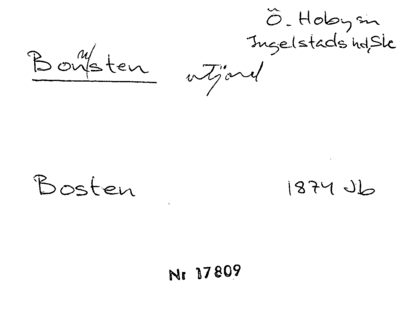 Ö. Hoby sn
Ingelstads hd, Sk
Bonsten
Bosten 1874 Jb
Nr 17809